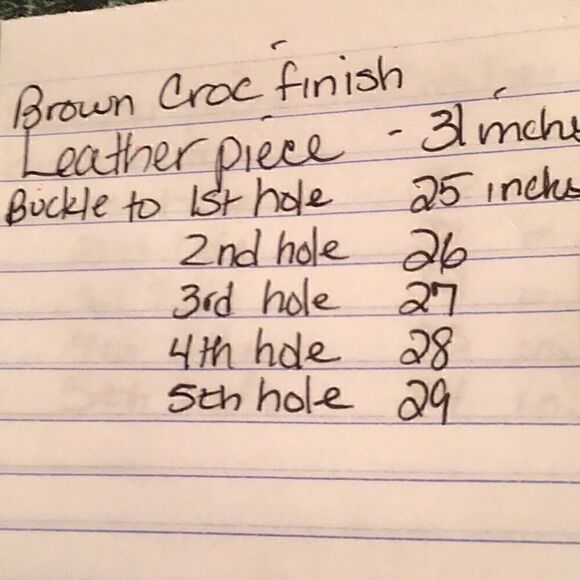 Brown Croc finish
Leather piece - 31 inches
Buckle to 1st hole 25 inches
2nd hole 26
3rd hole 27
4th hole 28
5th hole 29